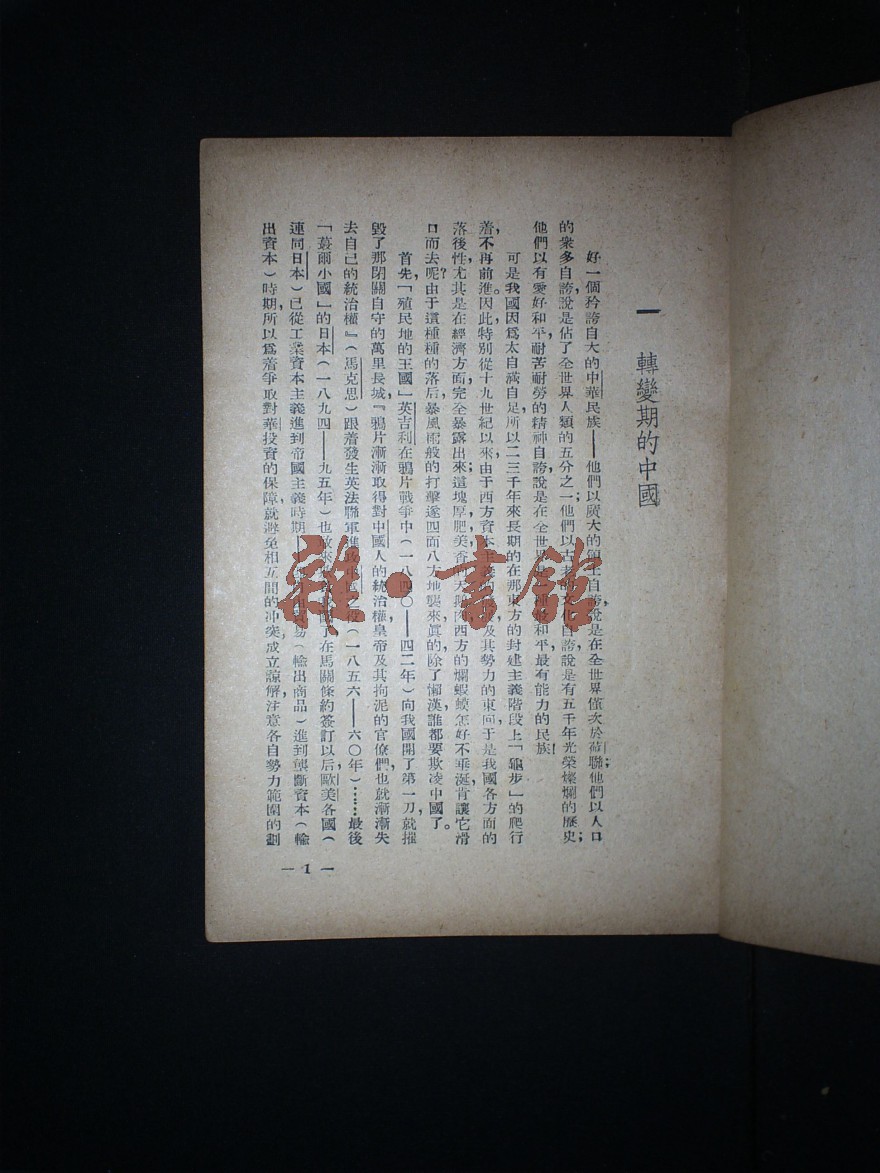 一 轉變期的中國
好一個矜誇自大的中華民族——他們以廣大的領土自誇,說是在全世界僅次於蘇聯;他們以人口
的衆多自誇,說是佔了全世界人類的五分之一;他們以古老的文化自誇,說是有五千年光榮燦爛的歷史;
他們以有愛好和平,耐苦耐勞的精神自誇,說是在全世界 和平,最有能力的民族。
可是我國因爲太自滅自足,所以二三千年來長期的在那東方的封建主義階段上「龜步」的爬行
着,不再前進。因此,特別從十九世紀以來,由于西方資本主義 及其勢力的東向,于是我國各方面的
落後性,尤其是在經濟方面,完全暴露出來;這塊厚肥美香的天鵝肉,西方的爛蝦蟆怎好不垂涎,肯讓它滑
口而去呢?由于這種種的落后,暴風雨般的打擊,遂四面八方地襲來,眞的,除了懶漢,誰都要欺凌中國了。
首先,「殖民地的王國」英吉利在鴉片戰爭中(一八四〇——四二年)向我國開了第一刀,就摧
毀了那閉關自守的萬里長城,『鴉片漸漸取得對中國人的統治權,皇帝及其拘泥的官僚們,也就漸漸失
去自己的統治權』(馬克思)跟着發生英法聯軍進攻 之役(一八五六——六〇年)……最後,
「蕞爾小國」的日本(一八九四——九五年)也敢來 了。在馬關條約簽訂以后,歐美各國(
連同日本)已從工業資本主義進到帝國主義時期, 由貿易(輸出商品)進到壟斷資本(輸
出資本)時期,所以爲着爭取對華投資的保障,就避免相互間的冲突,成立諒解,注意各自勢力範圍的劃
— 1 —
雜·書館